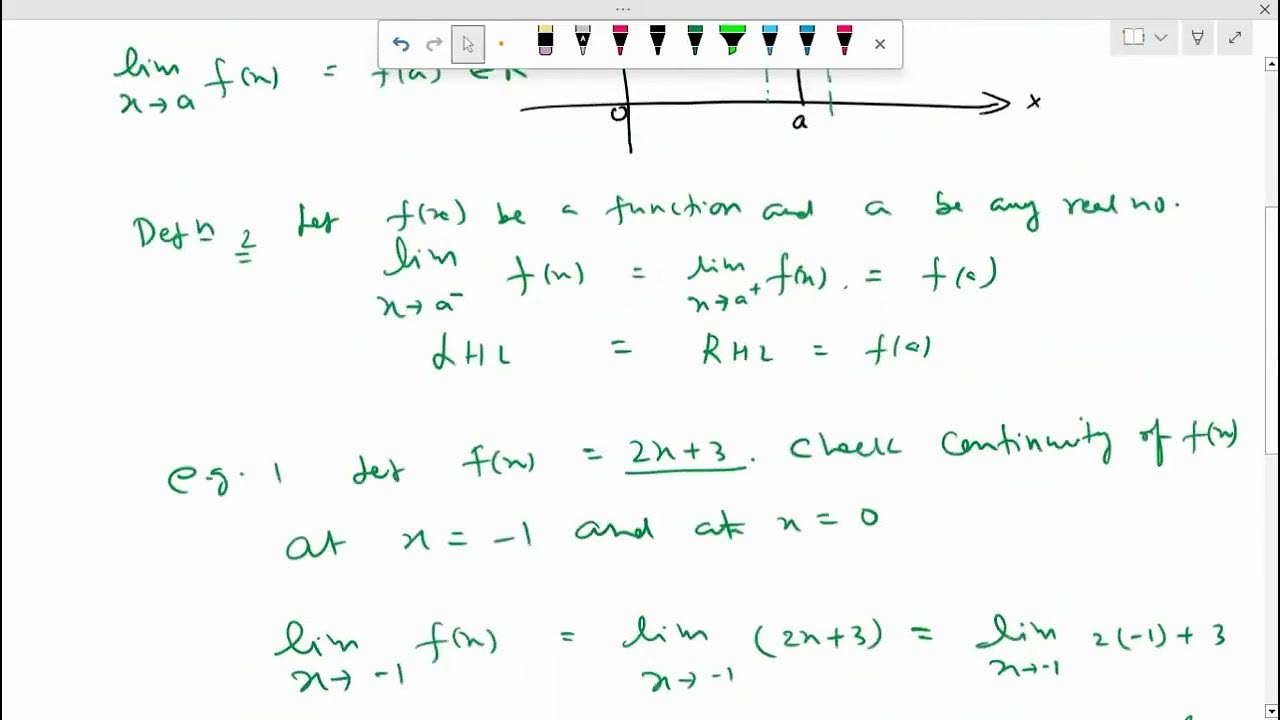 lim f(x) = f(a) ∈ R
x→a
O a x
Defn 2 Let f(x) be a function and a be any real no.
lim f(x) = lim f(x) . = f(a)
x→a⁻ x→a⁺
LHL = RHL = f(a)
e.g. 1 Let f(x) = 2x+3 . Check Continuity of f(x)
at x = -1 and at x = 0
lim f(x) = lim (2x+3) = lim 2(-1) + 3
x→ -1 x→ -1 x→-1